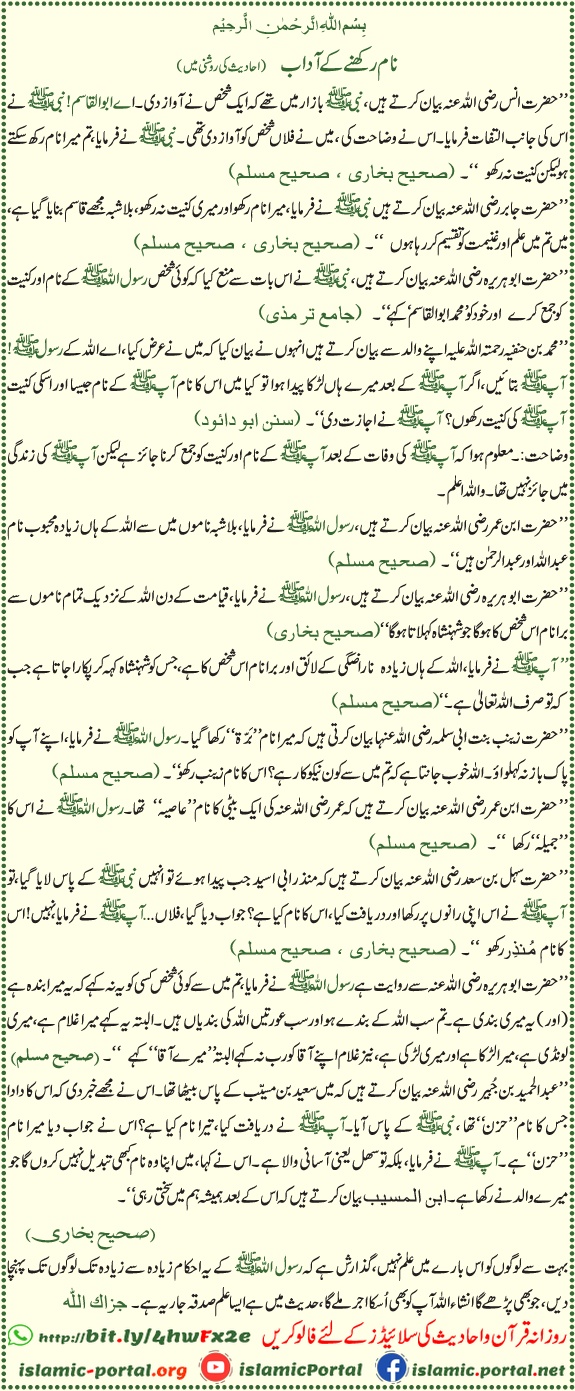 بِسْمِ اللهِ الرَّحْمٰنِ الرَّحِيْمِ
نام رکھنے کے آداب (احادیث کی روشنی میں)
’’حضرت انس رضی اللہ عنہ بیان کرتے ہیں، نبی ﷺ بازار میں تھے کہ ایک شخص نے آواز دی۔ اے ابوالقاسم! نبی ﷺ نے
اس کی جانب التفات فرمایا۔ اس نے وضاحت کی، میں نے فلاں شخص کو آواز دی تھی۔ نبی ﷺ نے فرمایا، تم میرا نام رکھ سکتے
ہو لیکن کنیت نہ رکھو ‘‘۔ (صحیح بخاری ، صحیح مسلم)
’’حضرت جابر رضی اللہ عنہ بیان کرتے ہیں نبی ﷺ نے فرمایا، میرا نام رکھو اور میری کنیت نہ رکھو، بلاشبہ مجھے قاسم بنایا گیا ہے،
میں تم میں علم اور غنیمت کو تقسیم کر رہا ہوں ‘‘۔ (صحیح بخاری ، صحیح مسلم)
’’حضرت ابو ہریرہ رضی اللہ عنہ بیان کرتے ہیں، نبی ﷺ نے اس بات سے منع کیا کہ کوئی شخص رسول اللہ ﷺ کے نام اور کنیت
کو جمع کرے اور خود کو ’محمد ابوالقاسم‘ کہے‘‘۔ (جامع تر مذی)
’’محمد بن حنفیہ رحمتہ اللہ علیہ اپنے والد سے بیان کرتے ہیں انہوں نے بیان کیا کہ میں نے عرض کیا، اے اللہ کے رسول ﷺ!
آپ ﷺ بتائیں، اگر آپ ﷺ کے بعد میرے ہاں لڑکا پیدا ہوا تو کیا میں اس کا نام آپ ﷺ کے نام جیسا اور اسکی کنیت
آپ ﷺ کی کنیت رکھوں؟ آپ ﷺ نے اجازت دی‘‘۔ (سنن ابو دائود)
وضاحت:۔ معلوم ہوا کہ آپ ﷺ کی وفات کے بعد آپ ﷺ کے نام اور کنیت کو جمع کرنا جائز ہے لیکن آپ ﷺ کی زندگی
میں جائز نہیں تھا۔ واللہ اعلم۔
’’حضرت ابن عمر رضی اللہ عنہ بیان کرتے ہیں، رسول اللہ ﷺ نے فرمایا، بلاشبہ ناموں میں سے اللہ کے ہاں زیادہ محبوب نام
عبداللہ اور عبدالرحمٰن ہیں‘‘۔ (صحیح مسلم)
’’حضرت ابو ہریرہ رضی اللہ عنہ بیان کرتے ہیں، رسول اللہ ﷺ نے فرمایا، قیامت کے دن اللہ کے نزدیک تمام ناموں سے
برا نام اس شخص کا ہوگا جو شہنشاہ کہلاتا ہوگا‘‘ (صحیح بخاری)
’’آپ ﷺ نے فرمایا، اللہ کے ہاں زیادہ ناراضگی کے لائق اور برا نام اس شخص کا ہے، جس کو شہنشاہ کہہ کر پکارا جاتا ہے جب
کہ تو صرف اللہ تعالٰی ہے۔‘‘ (صحیح مسلم)
’’حضرت زینب بنت ابی سلمہ رضی اللہ عنہا بیان کرتی ہیں کہ میرا نام ’’بَرَّۃ‘‘ رکھا گیا۔ رسول اللہ ﷺ نے فرمایا، اپنے آپ کو
پاک باز نہ کہلواؤ۔ اللہ خوب جانتا ہے کہ تم میں سے کون نیکوکار ہے؟ اس کا نام زینب رکھو‘‘۔ (صحیح مسلم)
’’حضرت ابن عمر رضی اللہ عنہ بیان کرتے ہیں کہ عمر رضی اللہ عنہ کی ایک بیٹی کا نام ’’عاصیہ‘‘ تھا۔ رسول اللہ ﷺ نے اس کا
’’جمیلہ‘‘ رکھا ‘‘۔ (صحیح مسلم)
’’حضرت سہل بن سعد رضی اللہ عنہ بیان کرتے ہیں کہ منذر ابی اسید جب پیدا ہوئے تو انہیں نبی ﷺ کے پاس لایا گیا، تو
آپ ﷺ نے اس اپنی رانوں پر رکھا اور دریافت کیا، اس کا نام کیا ہے؟ جواب دیا گیا، فلاں... آپ ﷺ نے فرمایا، نہیں! اس
کا نام مُنذِر رکھو ‘‘۔ (صحیح بخاری ، صحیح مسلم)
’’حضرت ابو ہریرہ رضی اللہ عنہ سے روایت ہے رسول اللہ ﷺ نے فرمایا، تم میں سے کوئی شخص کسی کو یہ نہ کہے کہ یہ میرا بندہ ہے
(اور) یہ میری بندی ہے۔ تم سب اللہ کے بندے ہو اور سب عورتیں اللہ کی بندیاں ہیں۔ البتہ یہ کہے میرا غلام ہے، میری
لونڈی ہے، میرا لڑکا ہے اور میری لڑکی ہے، نیز غلام اپنے آقا کو رب نہ کہے البتہ ’’میرے آقا‘‘ کہے ‘‘۔ (صحیح مسلم)
’’عبدالحمید بن جُبیر رضی اللہ عنہ بیان کرتے ہیں کہ میں سعید بن مسیّب کے پاس بیٹھا تھا۔ اس نے مجھے خبر دی کہ اس کا دادا
جس کا نام ’’حزن‘‘ تھا، نبی ﷺ کے پاس آیا۔ آپ ﷺ نے دریافت کیا، تیرا نام کیا ہے؟ اس نے جواب دیا میرا نام
’’حزن‘‘ ہے۔ آپ ﷺ نے فرمایا، بلکہ تو سھل یعنی آسانی والا ہے۔ اس نے کہا، میں اپنا وہ نام کبھی تبدیل نہیں کروں گا جو
میرے والد نے رکھا ہے۔ ابن المسیب بیان کرتے ہیں کہ اس کے بعد ہمیشہ ہم میں سختی رہی‘‘۔
(صحیح بخاری)
بہت سے لوگوں کو اس بارے میں علم نہیں، گذارش ہے کہ رسول اللہ ﷺ کے یہ احکام زیادہ سے زیادہ تک لوگوں تک پہنچا
دیں، جو بھی پڑھے گا انشاء اللہ آپ کو بھی اُسکا اجر ملے گا، حدیث میں ہے ایسا علم صدقہ جاریہ ہے۔ جزاک اللہ
روزانہ قرآن و احادیث کی سلائیڈز کے لئے فالو کریں http://bit.ly/4hwFx2e
islamic-portal.org islamicPortal islamic.portal.net